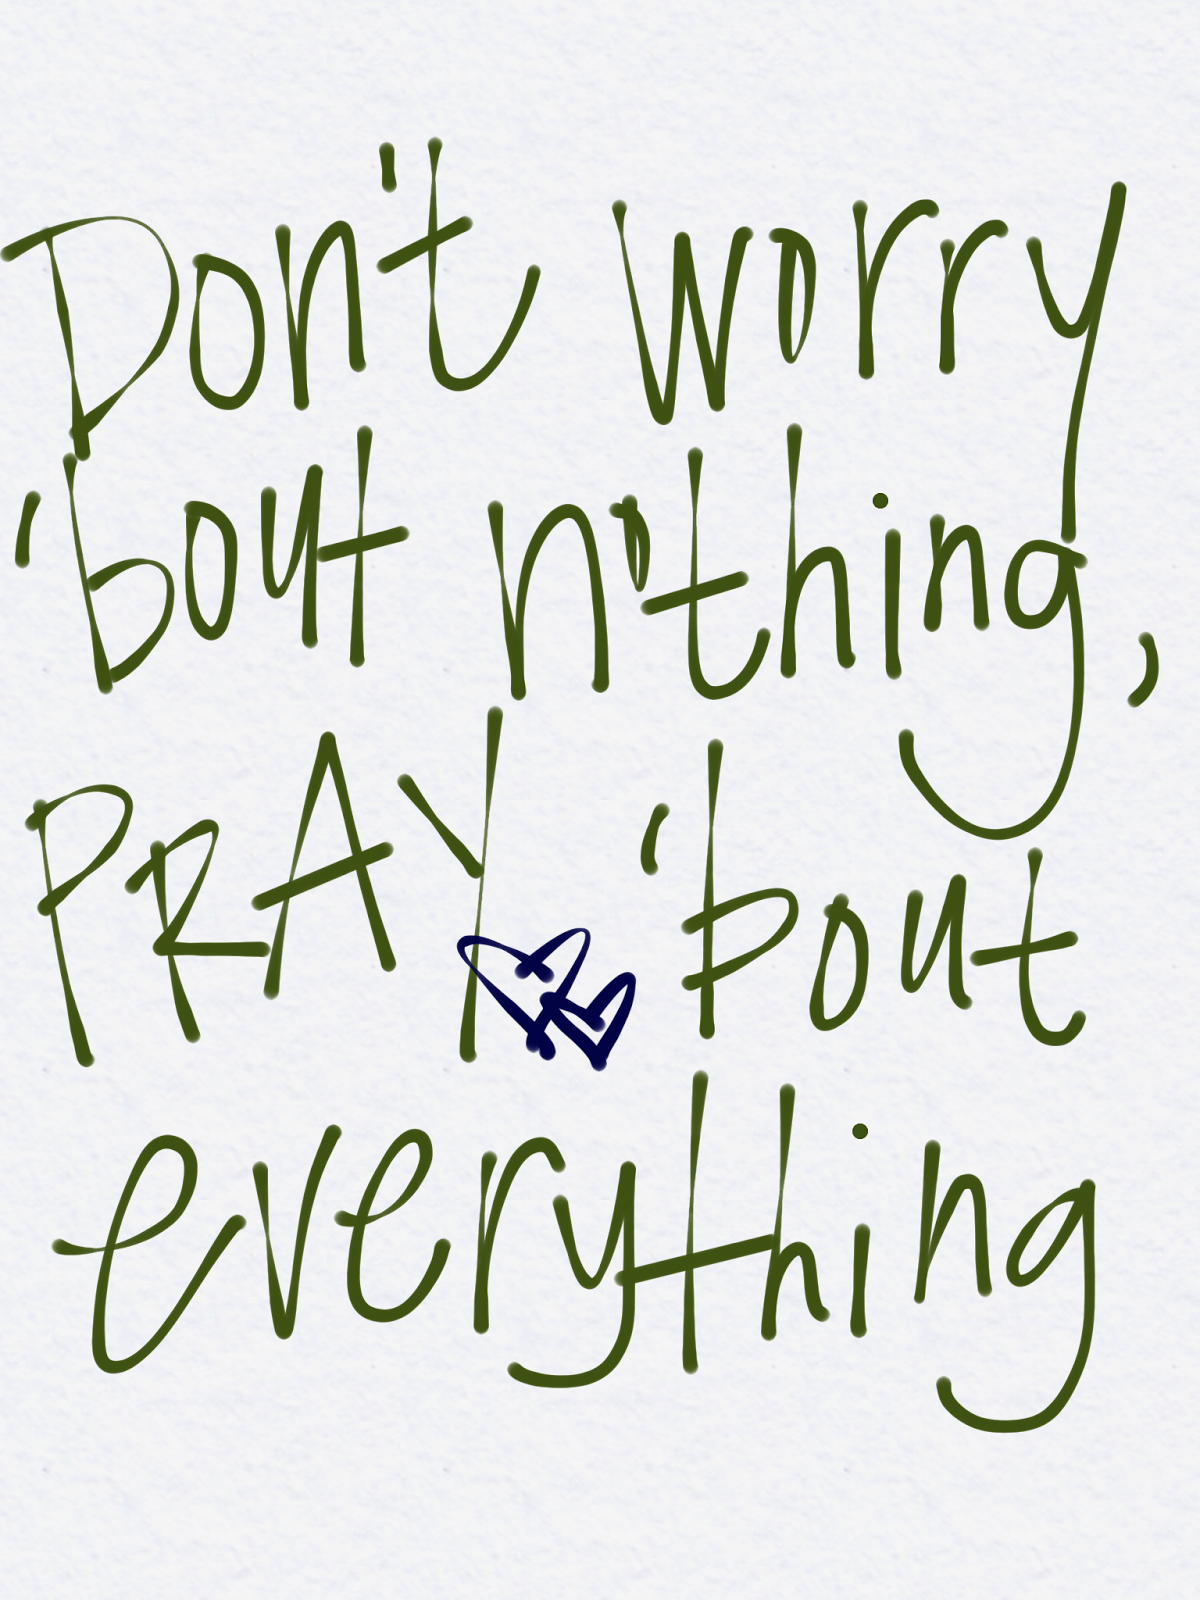 Don't worry
'bout nothing,
PRAY 'bout
everything